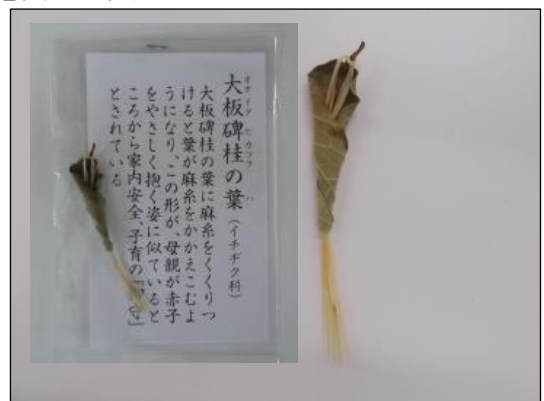 オオイタ ヒカツラ ハ
大板碑桂の葉(イチヂク科)
大板碑桂の葉に麻糸をくくりつ
けると葉が麻糸をかかえこむよ
うになり、この形が、母親が赤子
をやさしく抱く姿に似ていると
ころから家内安全、子育の「 」
とされている